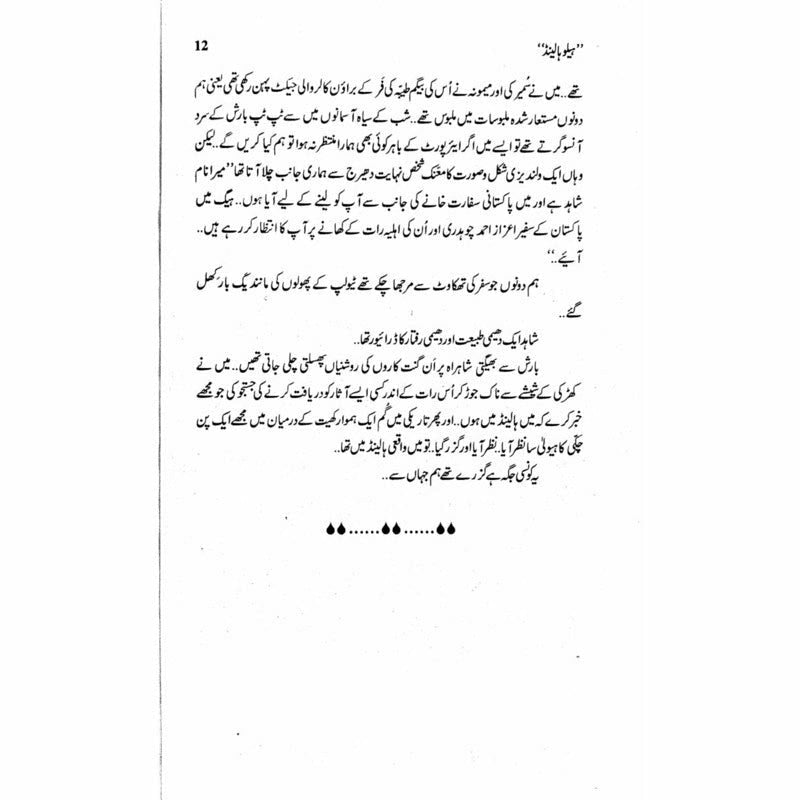 "ہیلو ہالینڈ" 12
تھے..میں نے سُمیر کی اور میمونہ نے اُس کی بیگم طیبہ کی فَر کے براؤن کالر والی جیکٹ پہن رکھی تھی یعنی ہم
دونوں مستعار شدہ ملبوسات میں ملبوس تھے..شب کے سیاہ آسمانوں میں سے ٹپ ٹپ بارش کے سرد
آنسو گرتے تھے تو ایسے میں اگر ایئرپورٹ کے باہر کوئی بھی ہمارا منتظر نہ ہوا تو ہم کیا کریں گے..لیکن
وہاں ایک ولندیزی شکل و صورت کا معنک شخص نہایت دھیرج سے ہماری جانب چلا آتا تھا "میرا نام
شاہد ہے اور میں پاکستانی سفارت خانے کی جانب سے آپ کو لینے کے لیے آیا ہوں..ہیگ میں
پاکستان کے سفیر اعزاز احمد چوہدری اور اُن کی اہلیہ رات کے کھانے پر آپ کا انتظار کر رہے ہیں..
آیئے.."
ہم دونوں جو سفر کی تھکاوٹ سے مرجھا چکے تھے ٹیولپ کے پھولوں کی مانند یک بار کِھل
گئے..
شاہد ایک دھیمی طبیعت اور دھیمی رفتار کا ڈرائیور تھا..
بارش سے بھیگتی شاہراہ پر اَن گنت کاروں کی روشنیاں پھسلتی چلی جاتی تھیں..میں نے
کھڑکی کے شیشے سے ناک جوڑ کر اُس رات کے اندر کسی ایسے آثار کو دریافت کرنے کی جستجو کی جو مجھے
خبر کرے کہ میں ہالینڈ میں ہوں..اور پھر تاریکی میں گُم ایک ہموار کھیت کے درمیان میں مجھے ایک پن
چکّی کا ہیولیٰ سا نظر آیا..نظر آیا اور گزر گیا..تو میں واقعی ہالینڈ میں تھا..
یہ کونسی جگہ ہے گزرے تھے ہم جہاں سے..